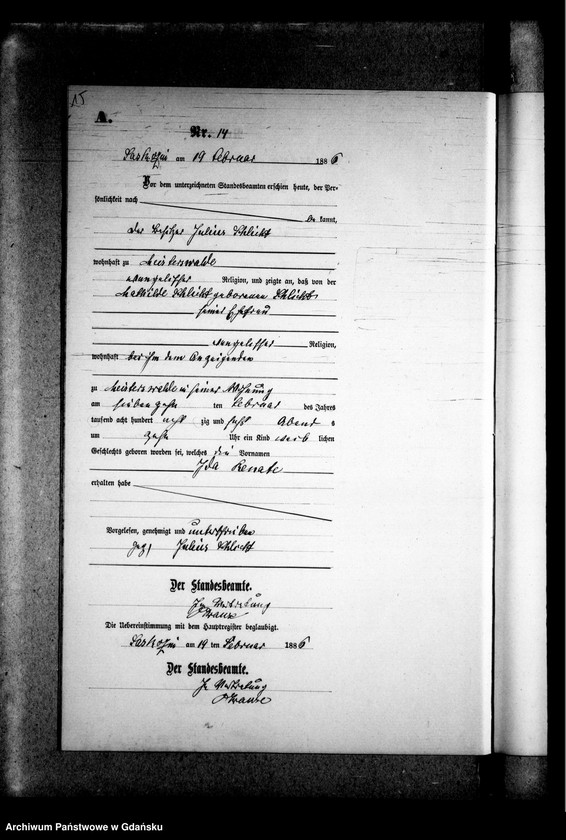 15
A.
Nr. 14
am 19 Februar 1886
Vor dem unterzeichneten Standesbeamten erschien heute, der Per-
sönlichkeit nach
be kannt,
der Besitzer Julius Schlicht
wohnhaft zu Meisterswalde
evangelischer Religion, und zeigte an, daß von der
Mathilde Schlicht geborenen Schlicht
seiner Ehefrau
evangelischer Religion,
wohnhaft bei ihm dem Anzeigenden
zu Meisterswalde in seiner Wohnung
am siebenzehn ten Februar des Jahres
tausend acht hundert acht zig und sechs Abend s
um zehn Uhr ein Kind weib lichen
Geschlechts geboren worden sei, welches die Vornamen
Ida Renate
erhalten habe
Vorgelesen, genehmigt und unterschrieben
gez. Julius Schlicht
Der Standesbeamte.
In Vertretung
Krause
Die Uebereinstimmung mit dem Hauptregister beglaubigt.
am 19 ten Februar 1886
Der Standesbeamte.
In Vertretung
Krause
Archiwum Państwowe w Gdańsku